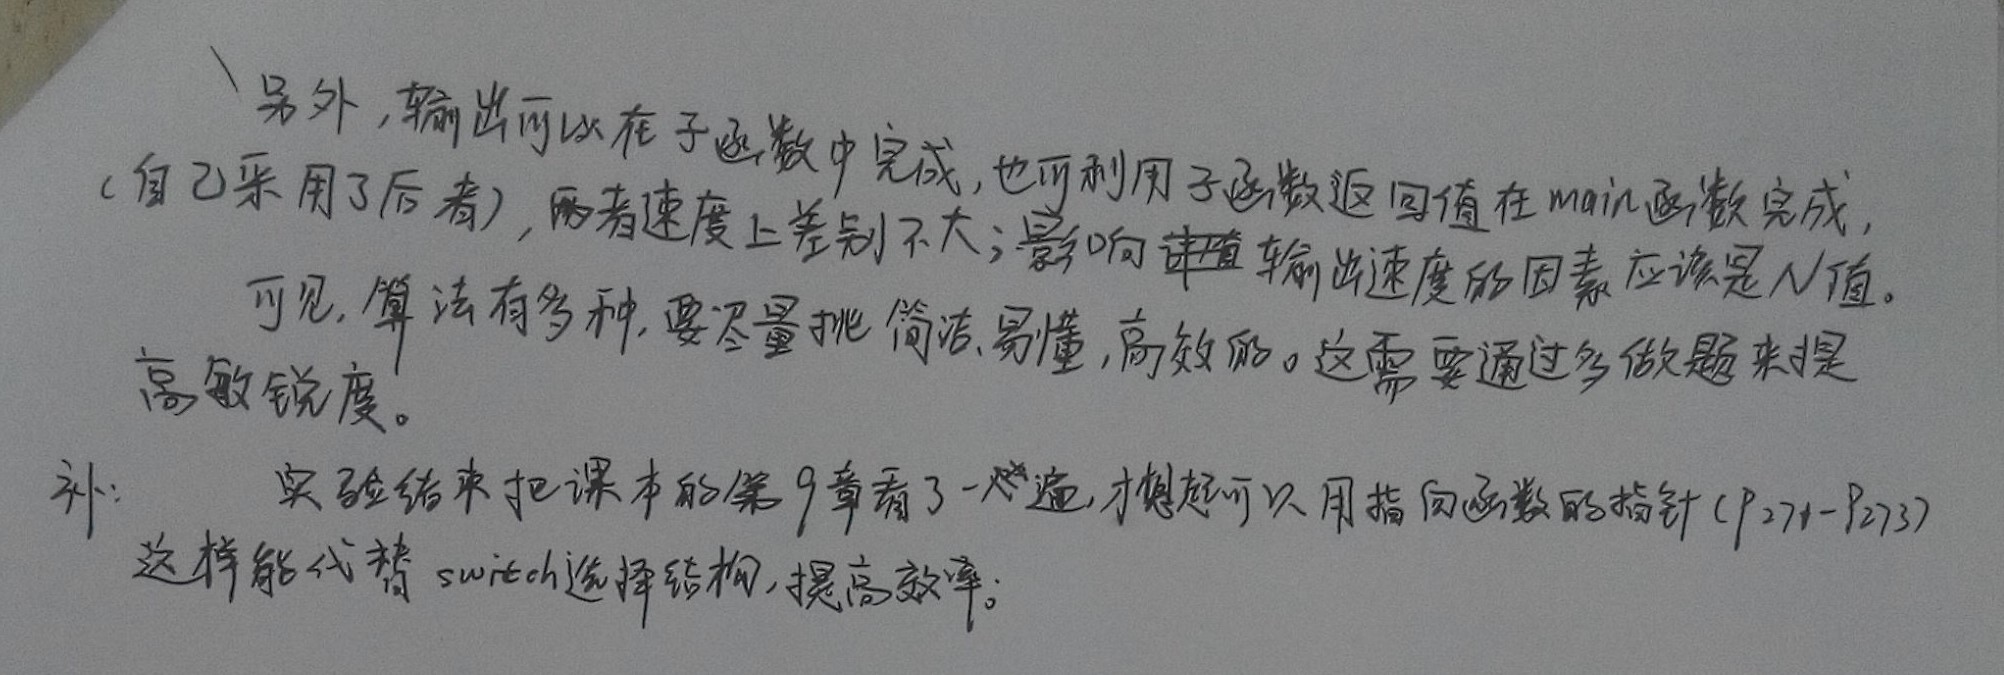 另外,输出可以在子函数中完成,也可利用子函数返回值在main函数完成,
(自己采用了后者),两者速度上差别不大;影响输出速度的因素应该是N值。
可见,算法有多种,要尽量挑简洁、易懂,高效的。这需要通过多做题来提
高敏锐度。
补: 实验结束把课本的第9章看了一遍,才想起可以用指向函数的指针(P271-P273)
这样能代替switch选择结构,提高效率。